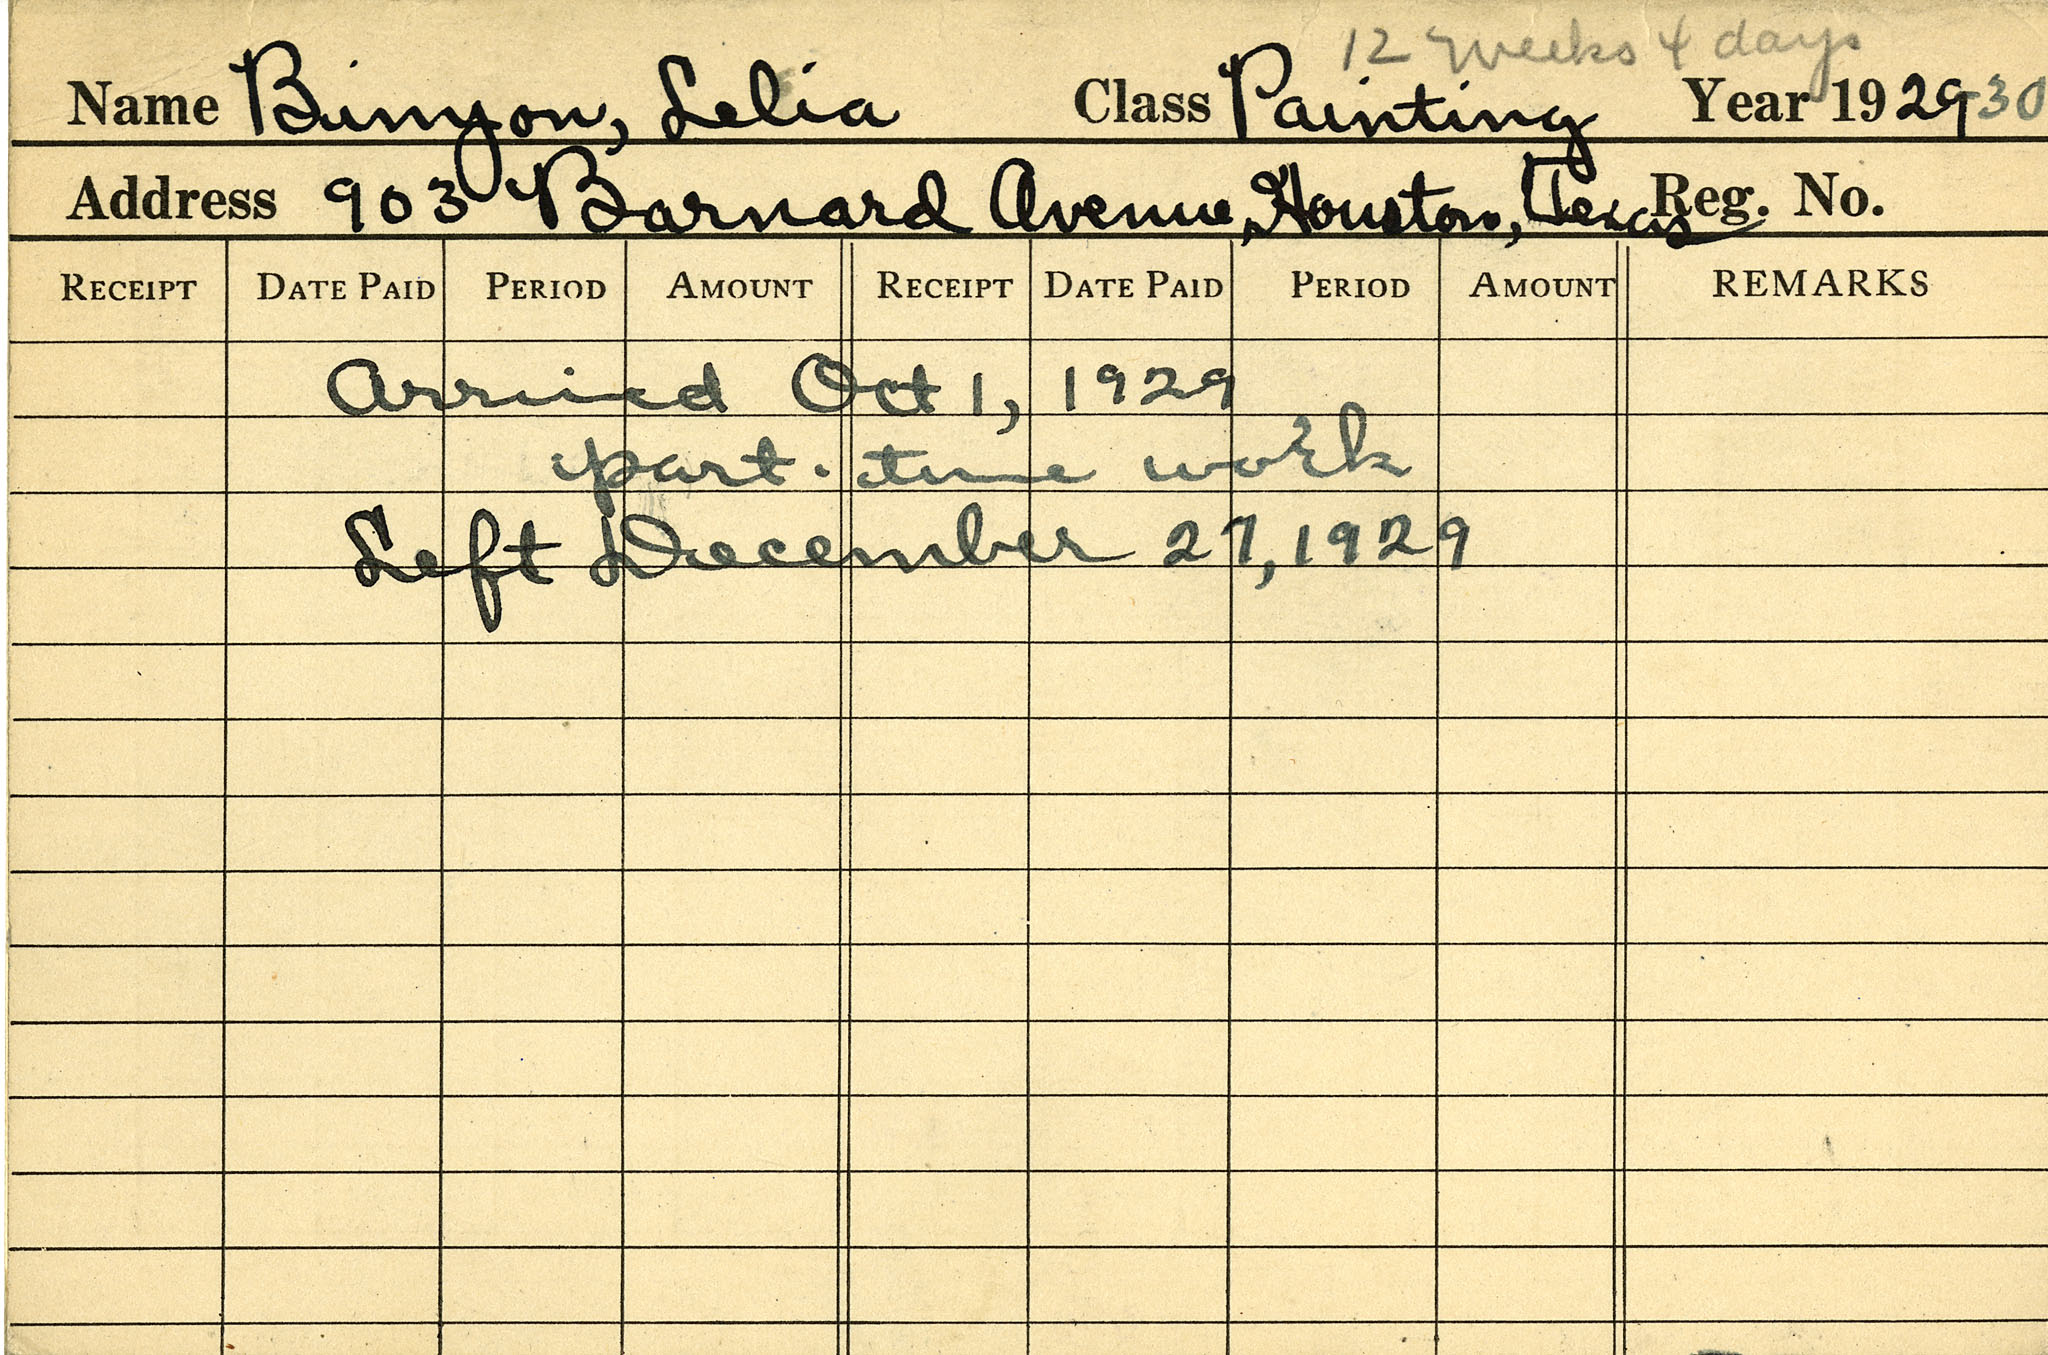 12 weeks 4 days
Name Binyon, Lelia Class Painting Year 1929-30
Address 903 Barnard Avenue, Houston, Texas Reg. No.
RECEIPT DATE PAID PERIOD AMOUNT RECEIPT DATE PAID PERIOD AMOUNT REMARKS
Arrived Oct 1, 1929
part-time work
Left December 27, 1929